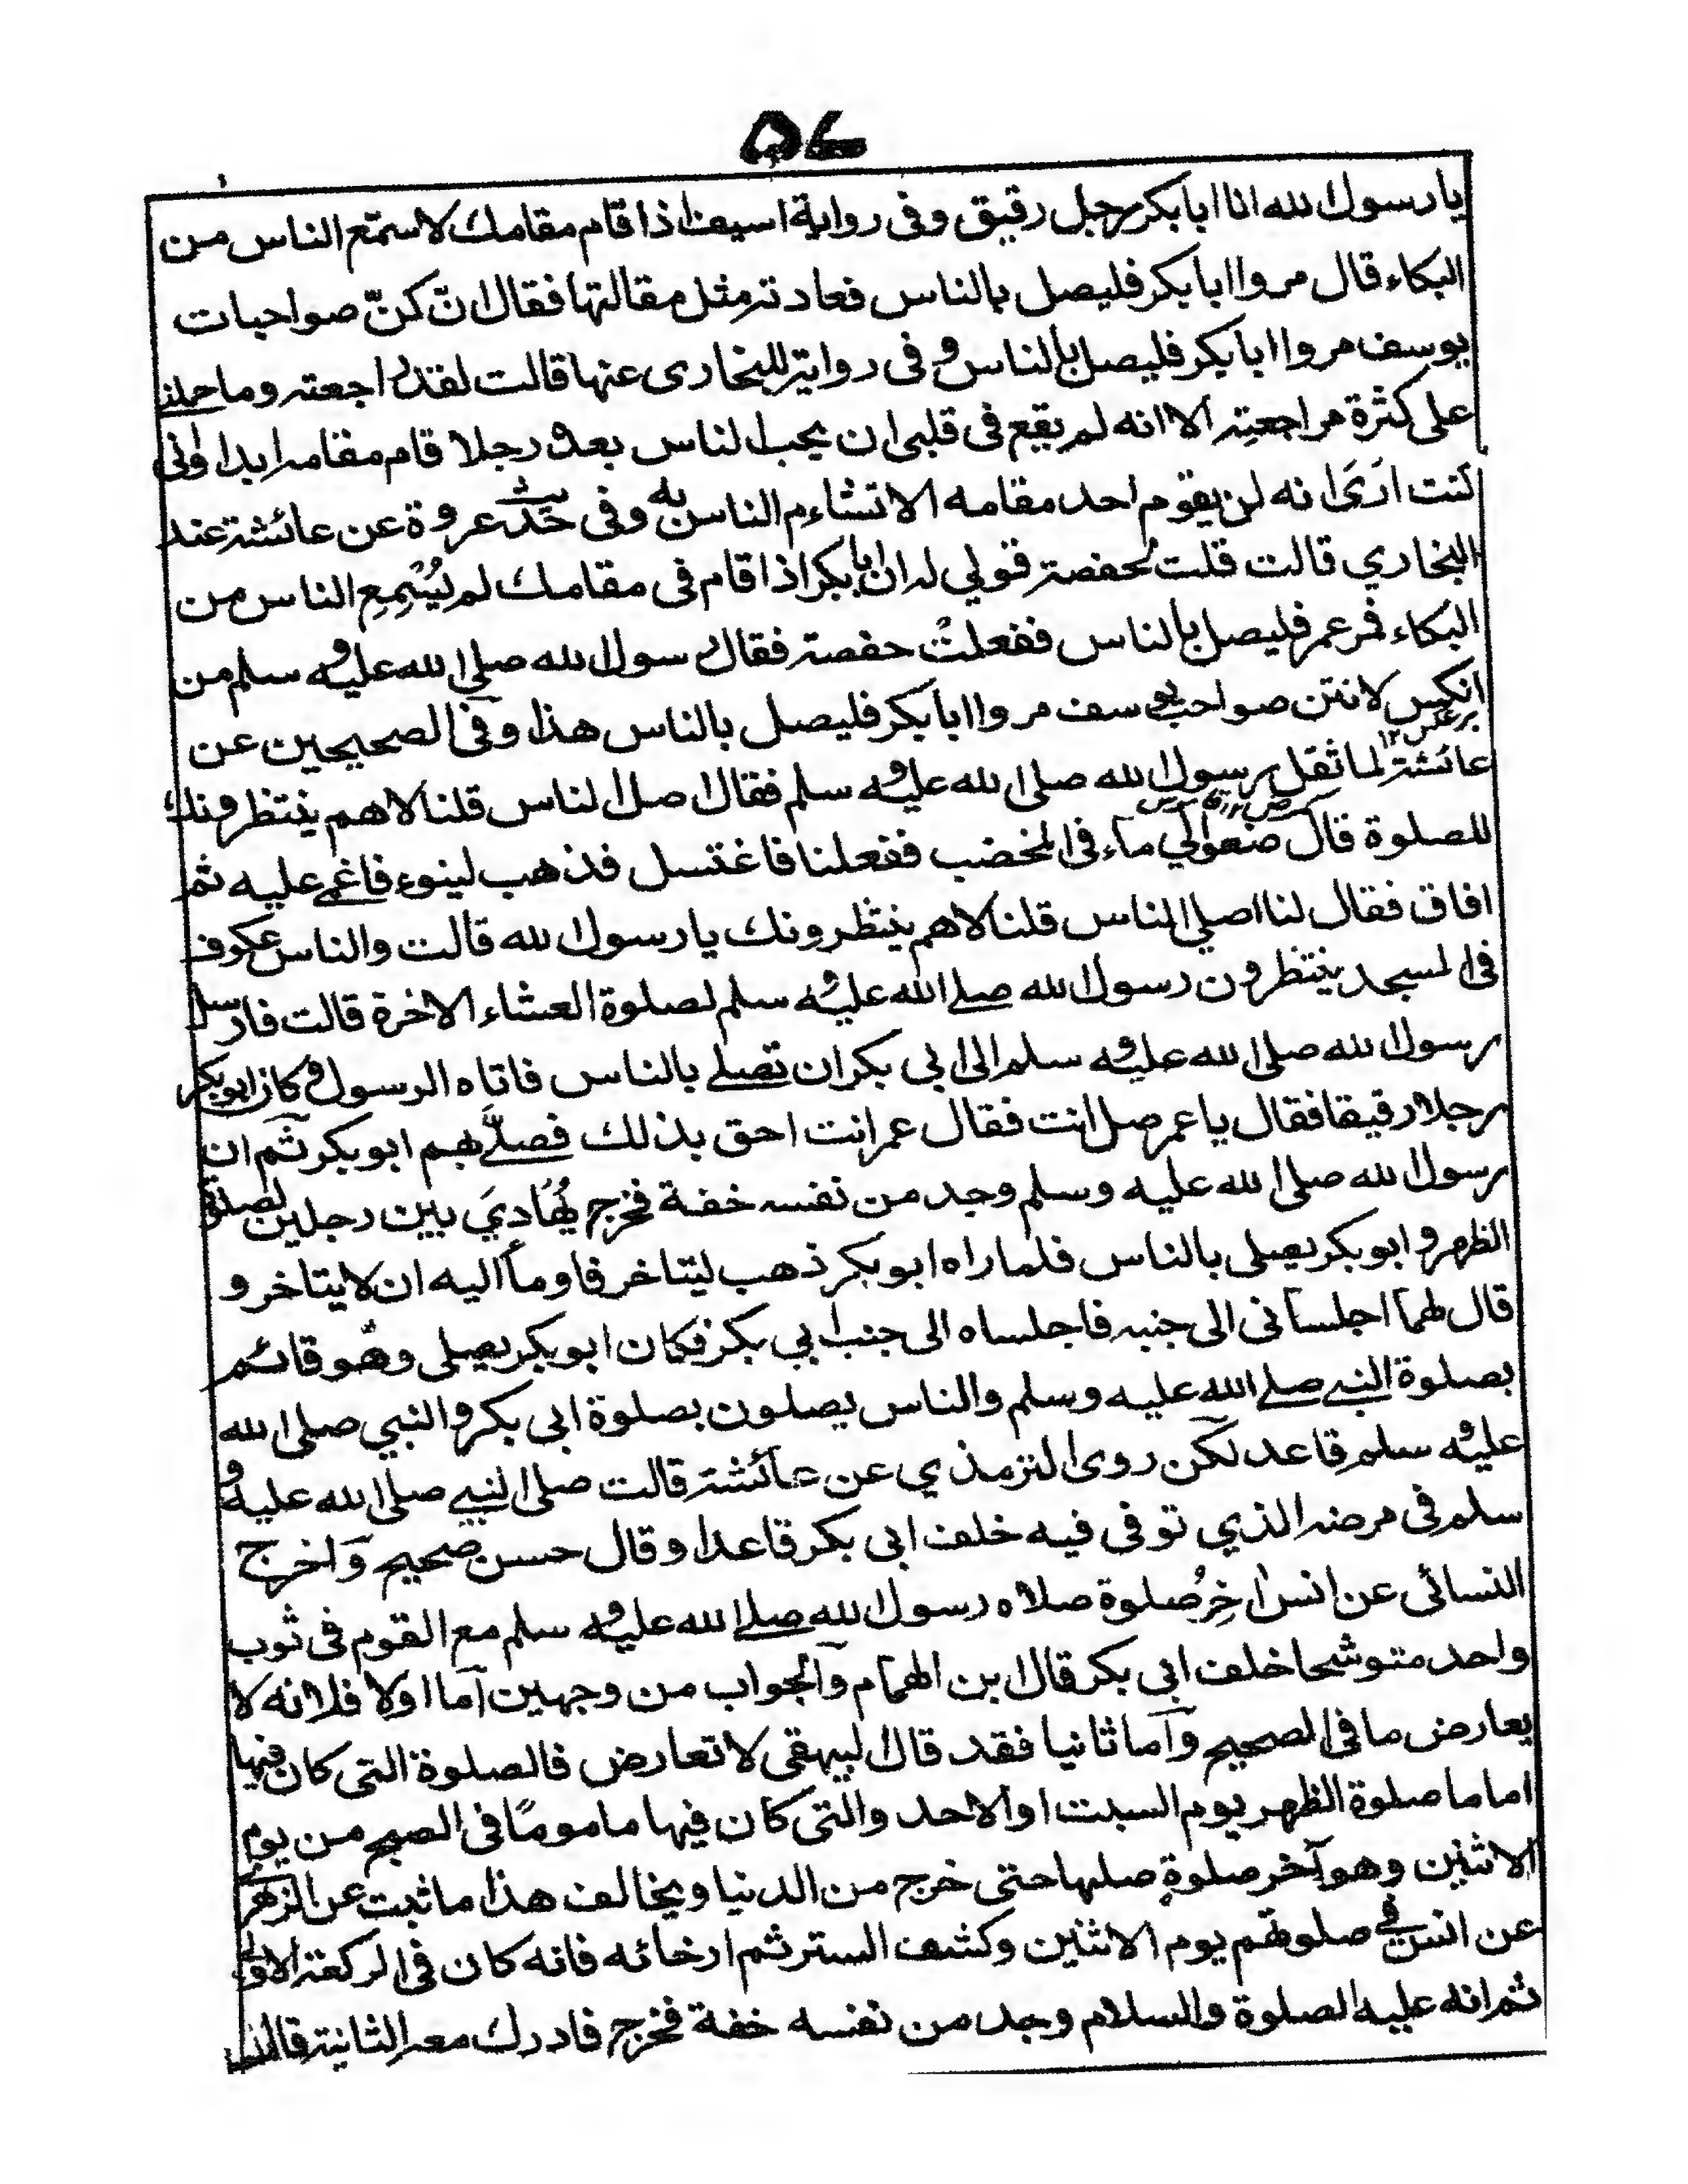 ۵۷
يا رسول الله ان ابا بكر رجل رقيق وفى رواية اسيف اذا قام مقامك لا سمّع الناس من
البكاء قال مروا ابا بكر فليصل بالناس فعادته مثل مقالتها فقال انّ كنّ صواحبات
يوسف مروا ابا بكر فليصل بالناس وفى رواية للبخارى عنها قالت لقد راجعته وما حملنے
على كثرة مراجعته الا انه لم يقع فى قلبى ان يحب الناس بعده رجلا قام مقامه ابدا وانى
كنت ارَى انه لن يقوم احد مقامه الا تشاءم الناس به وفى حديث عروة عن عائشة عند
البخاري قالت قلت لحفصة قولي له ان ابا بكر اذا قام فى مقامك لم يُسْمِعِ الناس من
البكاء فمر عمر فليصل بالناس ففعلتْ حفصة فقال رسول الله صلى الله عليه وسلم من
انكن لانتن صواحب يوسف مروا ابا بكر فليصل بالناس هذا وفى الصحيحين عن
عائشة لما ثقل رسول الله صلى الله عليه وسلم فقال اصل الناس قلنا لا هم ينتظرونك
للصلوة قال ضعوا لي ماء فى المخضب ففعلنا فاغتسل فذهب لينوء فاغمے عليه ثم
افاق فقال لنا اصلي الناس قلنا لا هم ينتظرونك يا رسول الله قالت والناس عكوف
فى المسجد ينتظرون رسول الله صلے الله عليه وسلم لصلوة العشاء الاخرة قالت فارسل
رسول الله صلى الله عليه وسلم الى ابي بكر ان تصلے بالناس فاتاه الرسول وكان ابو بكر
رجلا رقيقا فقال يا عمر صل انت فقال عمر انت احق بذلك فصلّے بهم ابو بكر ثم ان
رسول الله صلى الله عليه وسلم وجد من نفسه خفة فخرج يُهَاديَ بين رجلين لصلوة
الظهر وابو بكر يصلى بالناس فلما راه ابو بكر ذهب ليتاخر فاومأ اليه ان لا يتاخر و
قال لهما اجلسانى الى جنبه فاجلساه الى جنب ابي بكر فكان ابو بكر يصلى وهو قائم
بصلوة النبے صلے الله عليه وسلم والناس يصلون بصلوة ابى بكر والنبي صلى الله
عليه وسلم قاعد لكن روى الترمذي عن عائشة قالت صلى النبے صلى الله عليه و
سلم فى مرضه الذي توفى فيه خلف ابى بكر قاعدا وقال حسن صحيح واخرج
النسائى عن انس اٰخِرُ صلوة صلاه رسول الله صلے الله عليه وسلم مع القوم فى ثوب
واحد متوشحا خلف ابى بكر قال ابن الهمام والجواب من وجهين اما اولا فلانه لا
يعارض ما فى الصحيح واما ثانيا فقد قال البيهقى لا تعارض فالصلوة التى كان فيها
اماما صلوة الظهر يوم السبت او الاحد والتى كان فيها ماموماً فى الصبح من يوم
الاثنين وهو آخر صلوةٍ صلیها حتى خرج من الدنيا ويخالف هذا ما ثبت عن الزهرى
عن انس فى صلوتهم يوم الاثنين وكشف الستر ثم ارخائه فانه كان فى الركعة الاولى
ثم انه عليه الصلوة والسلام وجد من نفسه خفة فخرج فادرك معه الثانية